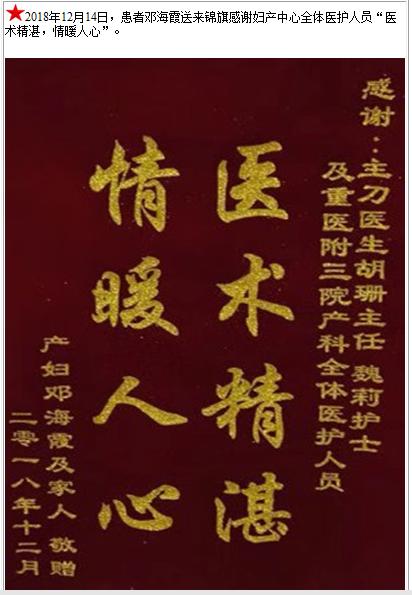 ★2018年12月14日，患者邓海霞送来锦旗感谢妇产中心全体医护人员“医
术精湛，情暖人心”。
感谢：主刀医生胡珊主任 魏莉护士
及重医附三院产科全体医护人员
医术精湛
情暖人心
产妇邓海霞及家人 敬赠
二零一八年十二月